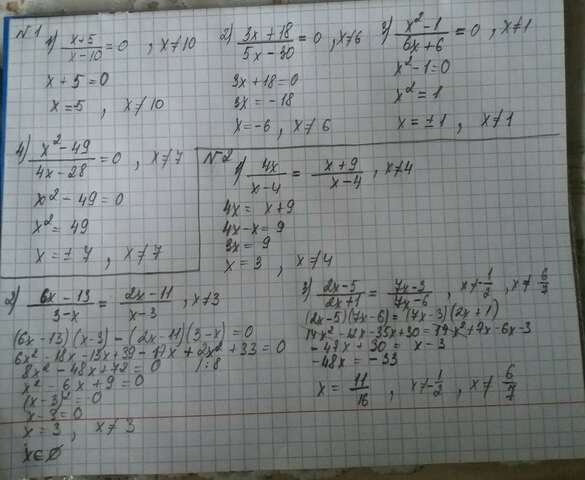 №1
1) (x+5)/(x-10) = 0 , x≠10
x+5=0
x=5 , x≠10
2) (3x+18)/(5x-30) = 0 , x≠6
3x+18=0
3x=-18
x=-6 , x≠6
3) (x²-1)/(6x+6) = 0 , x≠1
x²-1=0
x²=1
x=±1 , x≠1
4) (x²-49)/(4x-28) = 0 , x≠7
x²-49=0
x²=49
x=±7 , x≠7
№2
1) 4x/(x-4) = (x+9)/(x-4) , x≠4
4x = x+9
4x-x=9
3x=9
x=3 , x≠4
2) (6x-13)/(3-x) = (2x-11)/(x-3) , x≠3
(6x-13)(x-3)-(2x-11)(3-x)=0
6x²-18x-13x+39-17x+2x²+33=0
8x²-48x+72=0 /:8
x²-6x+9=0
(x-3)²=0
x-3=0
x=3 , x≠3
x∈∅
3) (2x-5)/(2x+1) = (7x-3)/(7x-6) , x≠-1/2 , x≠6/7
(2x-5)(7x-6)=(7x-3)(2x+1)
14x²-12x-35x+30=14x²+7x-6x-3
-47x+30=x-3
-48x=-33
x=11/16 , x≠-1/2 , x≠6/7